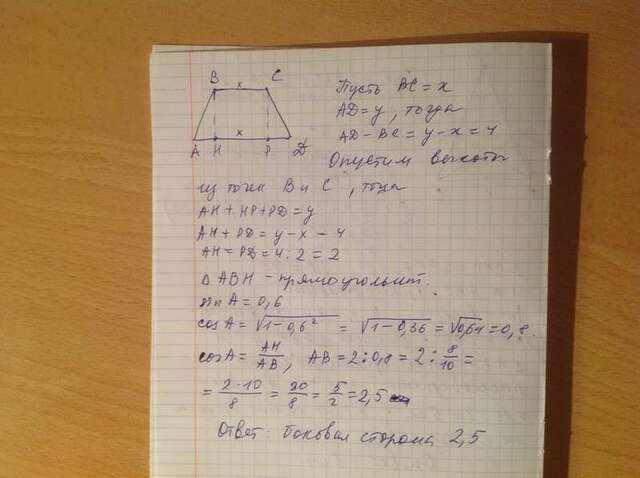 B C
x
x
A H P D
Пусть BC = x
AD = y, тогда
AD - BC = y - x = 4
Опустим высоты
из точки B и C, тогда
AH + HP + PD = y
AH + PD = y - x = 4
AH = PD = 4 : 2 = 2
Δ ABH - прямоугольный.
sin A = 0,6
cos A = √1-0,6² = √1-0,36 = √0,64 = 0,8
cos A = AH/AB; AB = 2 : 0,8 = 2 : 8/10 =
= 2·10/8 = 20/8 = 5/2 = 2,5
Ответ: боковая сторона 2,5